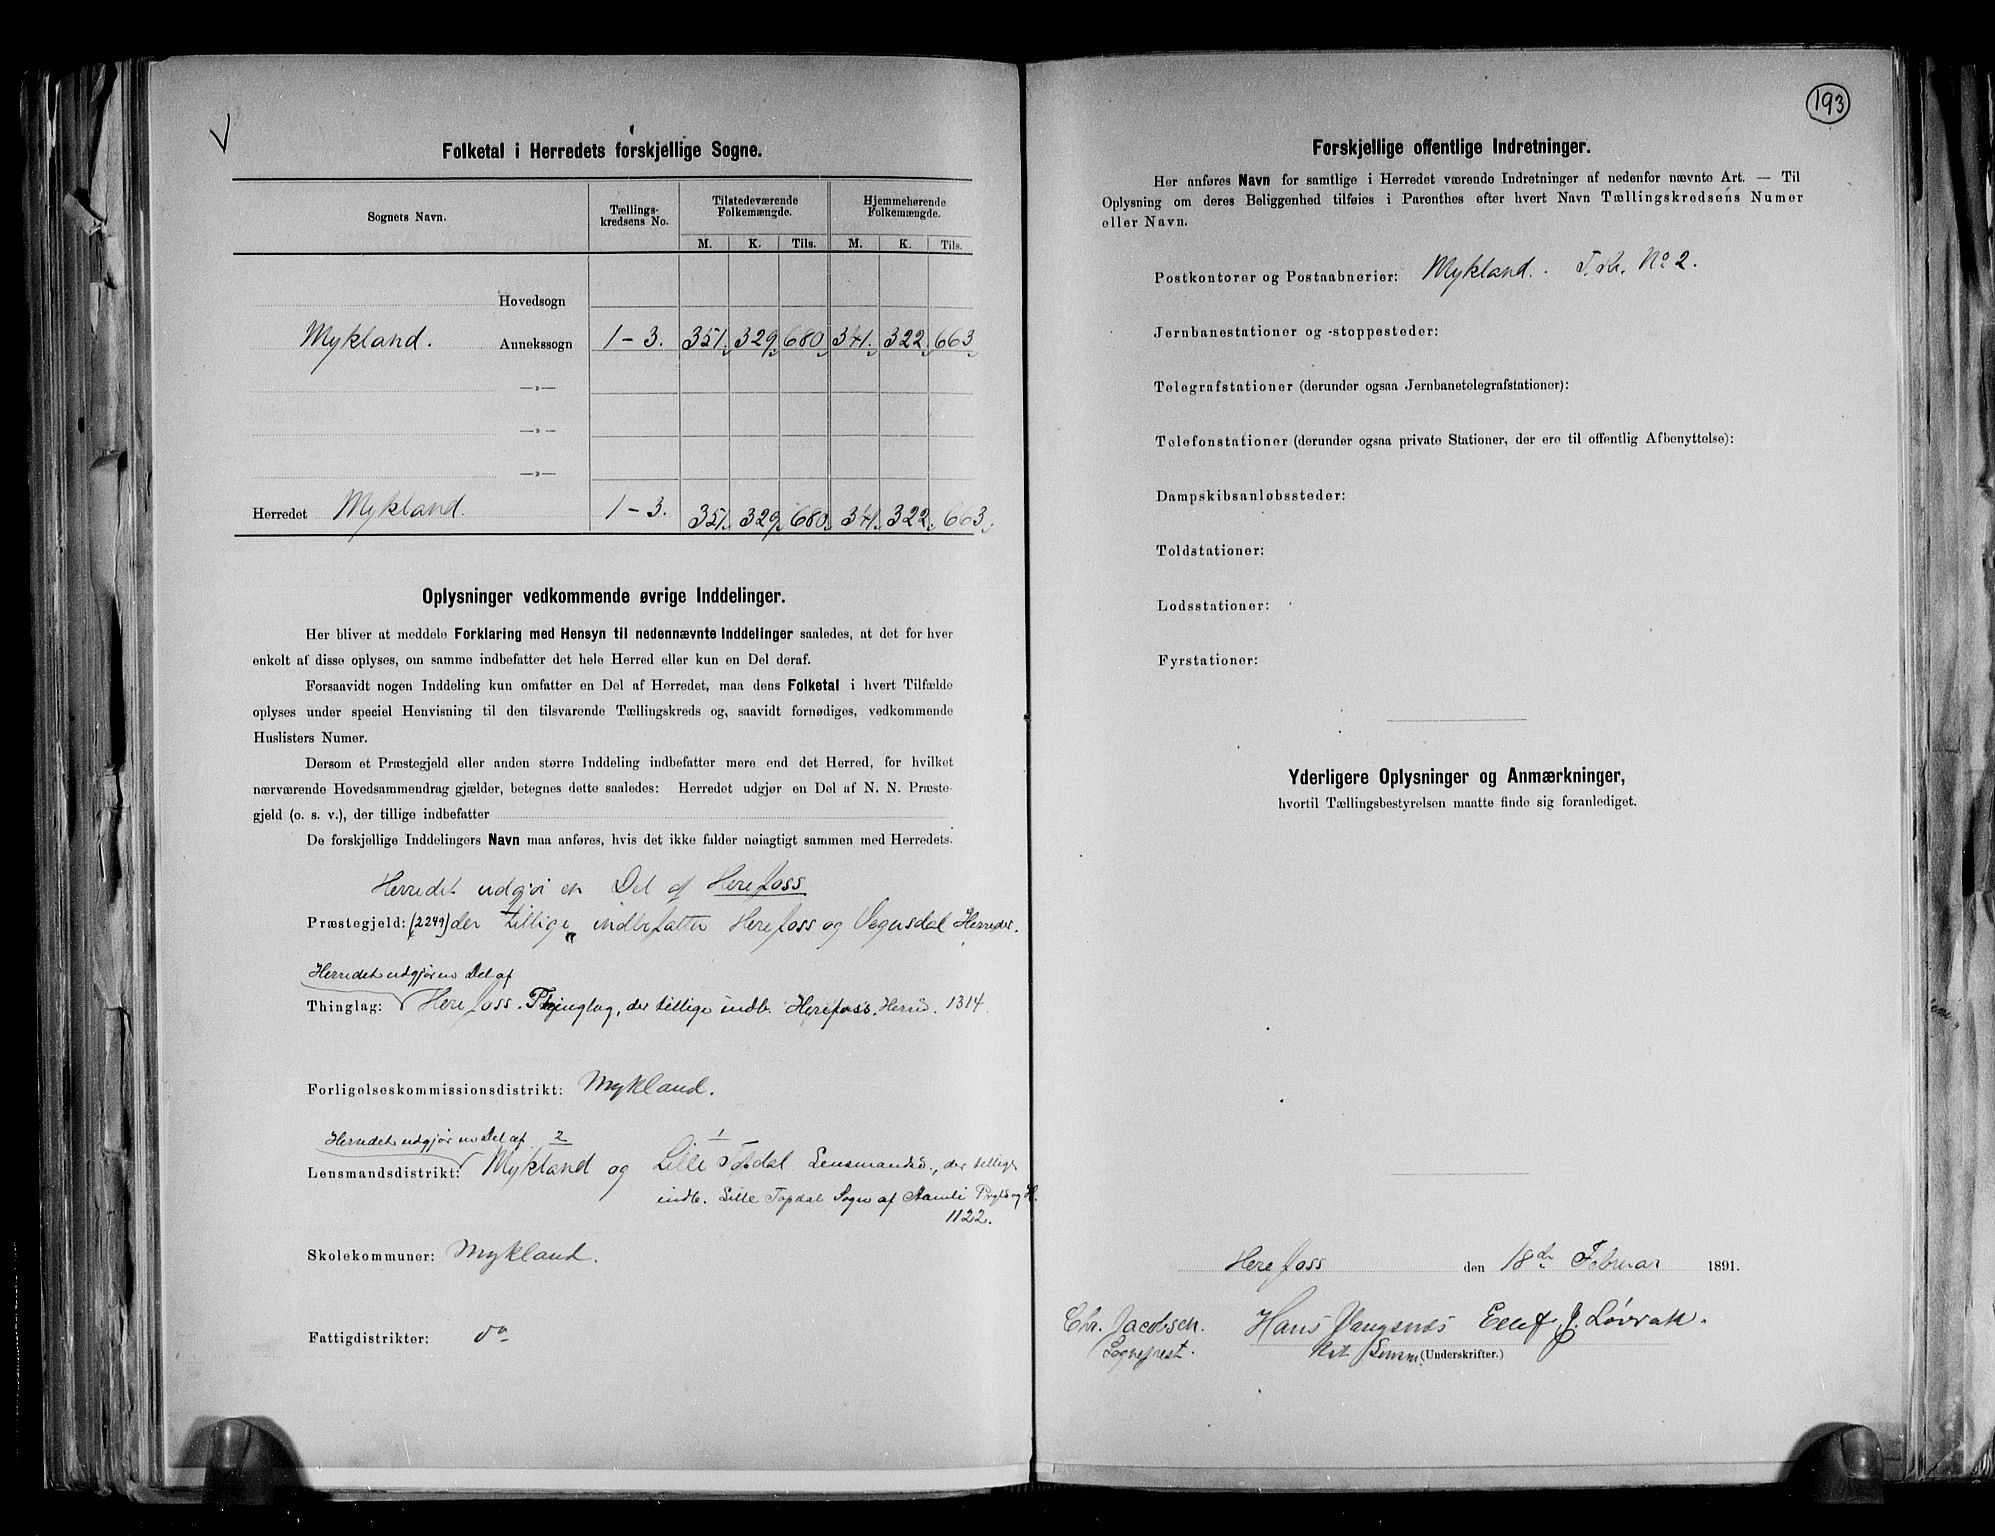 V
Folketal i Herredets forskjellige Sogne.
Sognets Navn.
Tællings-
kredsens No.
Tilstedeværende
Folkemængde.
Hjemmehørende
Folkemængde.
M. K. Tils. M. K. Tils.
Hovedsogn
Mykland. Annekssogn 1-3. 351. 329. 680. 341. 322. 663.
—»—
—»—
—»—
Herredet Mykland. 1-3. 351. 329. 680. 341. 322. 663.
Oplysninger vedkommende øvrige Inddelinger.
Her bliver at meddele Forklaring med Hensyn til nedennævnte Inddelinger saaledes, at det for hver
enkelt af disse oplyses, om samme indbefatter det hele Herred eller kun en Del deraf.
Forsaavidt nogen Inddeling kun omfatter en Del af Herredet, maa dens Folketal i hvert Tilfælde
oplyses under speciel Henvisning til den tilsvarende Tællingskreds og, saavidt fornødiges, vedkommende
Huslisters Numer.
Dersom et Præstegjeld eller anden større Inddeling indbefatter mere end det Herred, for hvilket
nærværende Hovedsammendrag gjælder, betegnes dette saaledes: Herredet udgjør en Del af N. N. Præste-
gjeld (o. s. v.), der tillige indbefatter
De forskjellige Inddelingers Navn maa anføres, hvis det ikke falder nøiagtigt sammen med Herredets.
Herredet udgjør en Del af Herefoss
Præstegjeld: (2249) der tillige indbefatter Herefoss og Vegusdal Herreder.
Herredet udgjør en Del af
Thinglag: Herefoss. Thinglag, der tillige indb. Herefoss. Herred. 1314.
Forligelseskommissionsdistrikt: Mykland.
Herredet udgjør en Del af 2 1
Lensmandsdistrikt: Mykland og Lille Topdal Lensmandsd., der tillige
indb. Lille Topdal Sogn af Aamli Prgld og H.
1122.
Skolekommuner: Mykland.
Fattigdistrikter: do
193
Forskjellige offentlige Indretninger.
Her anføres Navn for samtlige i Herredet værende Indretninger af nedenfor nævnte Art. — Til
Oplysning om deres Beliggenhed tilføies i Parenthes efter hvert Navn Tællingskredsens Numer
eller Navn.
Postkontorer og Postaabnerier: Mykland. T. kr. No 2.
Jernbanestationer og -stoppesteder:
Telegrafstationer (derunder ogsaa Jernbanetelegrafstationer):
Telefonstationer (derunder ogsaa private Stationer, der ere til offentlig Afbenyttelse):
Dampskibsanløbssteder:
Toldstationer:
Lodsstationer:
Fyrstationer:
Yderligere Oplysninger og Anmærkninger,
hvortil Tællingsbestyrelsen maatte finde sig foranlediget.
Herefoss den 18de Februar 1891.
Chr. Jacobsen. Hans Vangsnes Ellef J. Løvrak.
Sognepræst. Lensm. (Underskrifter.)